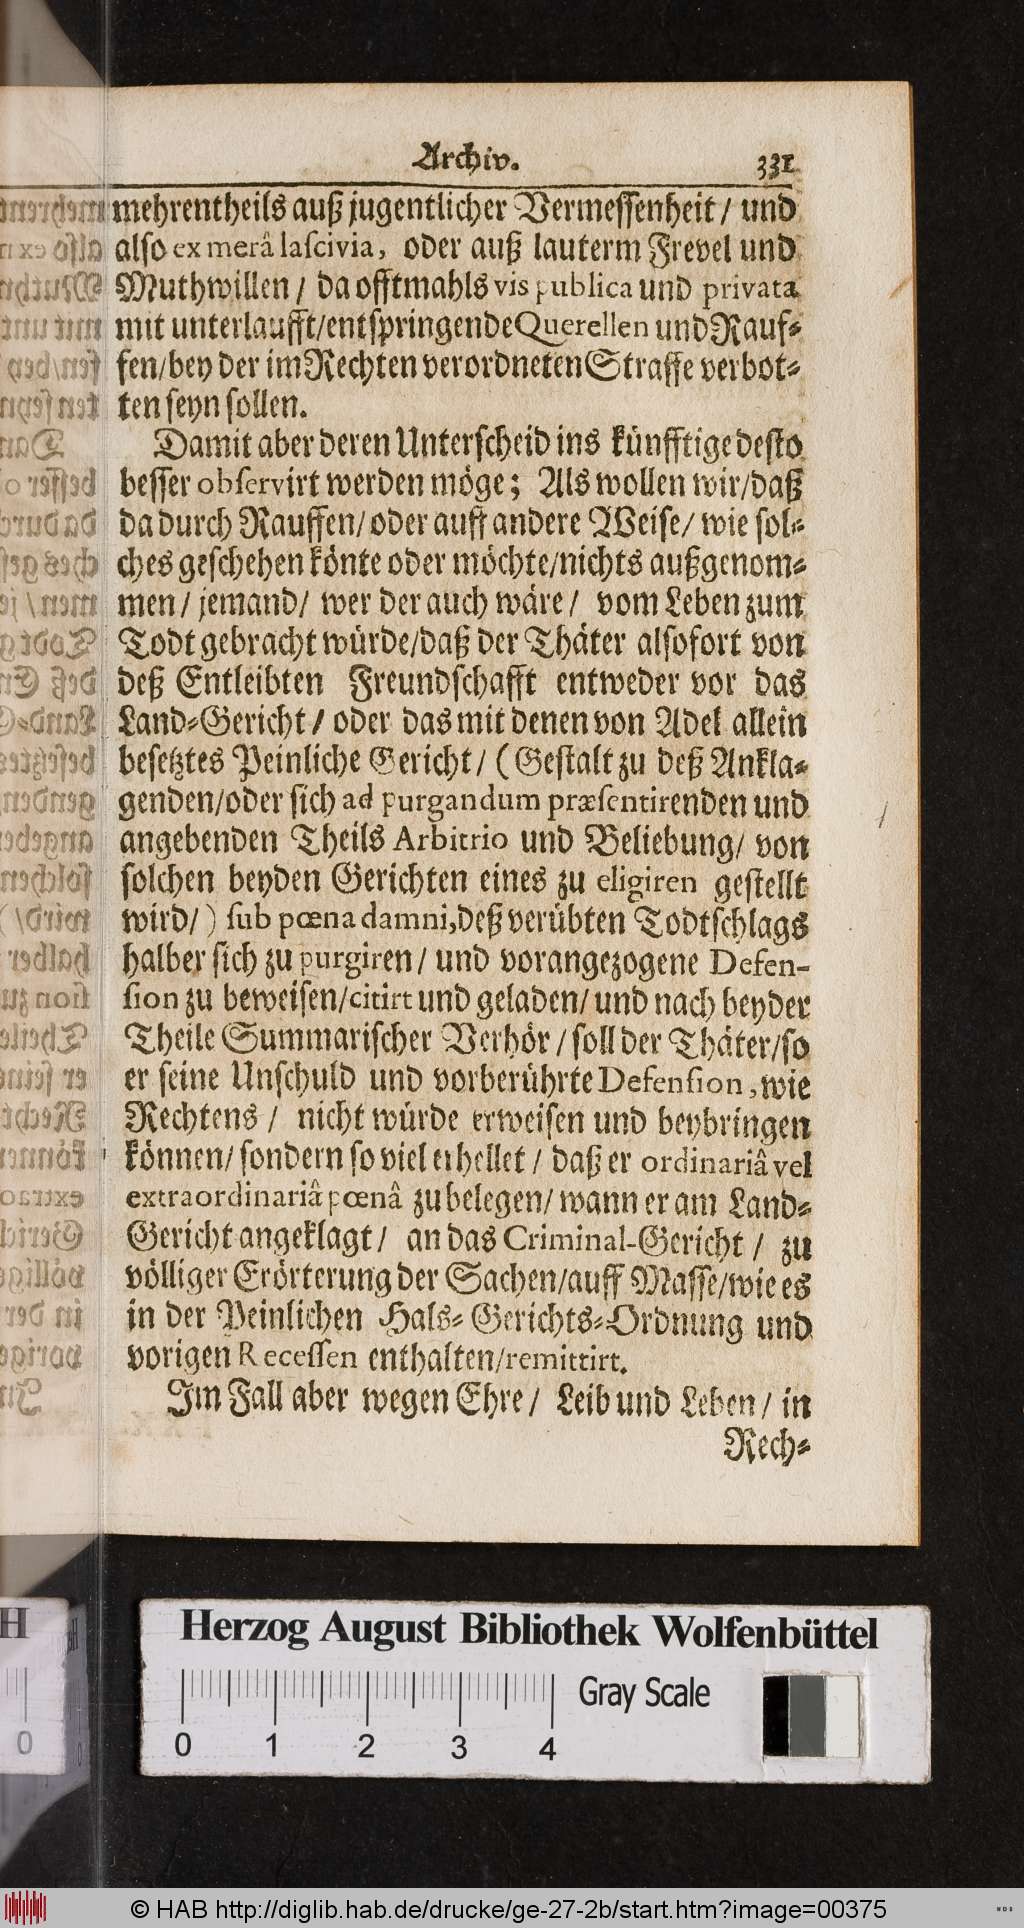 Archiv. 331
mehrentheils auß jugentlicher Vermessenheit / und
also ex merâ lascivia, oder auß lauterm Frevel und
Muthwillen / da offtmahls vis publica und privata
mit unterlaufft/entspringende Querellen und Rauf-
fen/bey der im Rechten verordneten Straffe verbot-
ten seyn sollen.
Damit aber deren Unterscheid ins künfftige desto
besser observirt werden möge; Als wollen wir/daß
da durch Rauffen/ oder auff andere Weise/ wie sol-
ches geschehen könte oder möchte/nichts außgenom-
men/ jemand/ wer der auch wäre/ vom Leben zum
Todt gebracht würde/daß der Thäter alsofort von
deß Entleibten Freundschafft entweder vor das
Land-Gericht / oder das mit denen von Adel allein
besetztes Peinliche Gericht / (Gestalt zu deß Ankla-
genden/oder sich ad purgandum præsentirenden und
angebenden Theils Arbitrio und Beliebung/ von
solchen beyden Gerichten eines zu eligiren gestellt
wird/) sub pœna damni, deß verübten Todtschlags
halber sich zu purgiren / und vorangezogene Defen-
sion zu beweisen/citirt und geladen/ und nach beyder
Theile Summarischer Verhör / soll der Thäter/so
er seine Unschuld und vorberührte Defension, wie
Rechtens / nicht würde erweisen und beybringen
können/ sondern so viel erhellet / daß er ordinariâ vel
extraordinariâ pœnâ zu belegen/ wann er am Land-
Gericht angeklagt / an das Criminal-Gericht / zu
völliger Erörterung der Sachen/auff Masse/wie es
in der Peinlichen Hals-Gerichts-Ordnung und
vorigen Recessen enthalten/remittirt.
Im Fall aber wegen Ehre / Leib und Leben / in
Rech-
Herzog August Bibliothek Wolfenbüttel
0 1 2 3 4 Gray Scale
© HAB http://diglib.hab.de/drucke/ge-27-2b/start.htm?image=00375